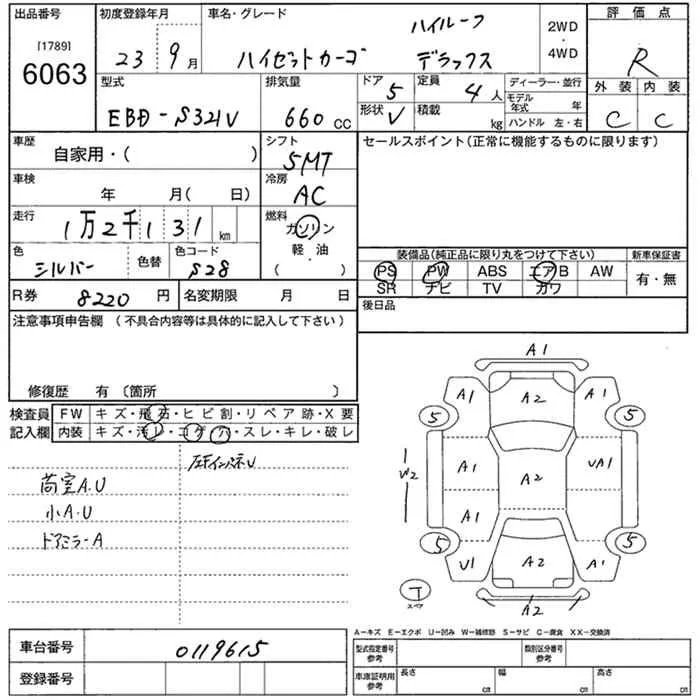 出品番号
[1789]
6063
初度登録年月
23 9月
車名・グレード
ハイルーフ
ハイゼットカーゴ デラックス
2WD
・
4WD
評価点
R
外装 内装
C C
型式
EBD-S321V
排気量
660 cc
ドア 5
定員 4人
形状 V
積載 kg
ディーラー・並行
モデル年式 年
ハンドル 左・右
車歴
自家用・( )
シフト
5MT
車検
年 月( 日)
冷房
AC
走行
1万2千131 km
燃料
ガソリン
軽・油
( ・ )
色
シルバー
色替
色コード
S28
R券 8220 円
名変期限 月 日
セールスポイント(正常に機能するものに限ります)
装備品(純正品に限り丸をつけて下さい)
新車保証書
PS PW ABS エアB AW
SR ナビ TV カワ
有・無
後日品
注意事項申告欄 (不具合内容等は具体的に記入して下さい)
修復歴 有 〔箇所 〕
検査員記入欄
FW キズ・飛石・ヒビ割・リペア跡・X要
内装 キズ・汚レ・コゲ・穴・スレ・キレ・破レ
荷室A.U
小A.U
ドアミラーA
A1
A1 A2 A1
5 5
A1 A2 UA1
W2
A1
5 5
U1 A2 A1
T
スペア
A2
A-キズ E-エクボ U-凹み W-補修跡 S-サビ C-腐食 XX-交換済
車台番号 0119615
登録番号
型式指定番号
参考
類別区分番号
参考
車庫証明用
参考
長さ cm
幅 cm
高さ cm